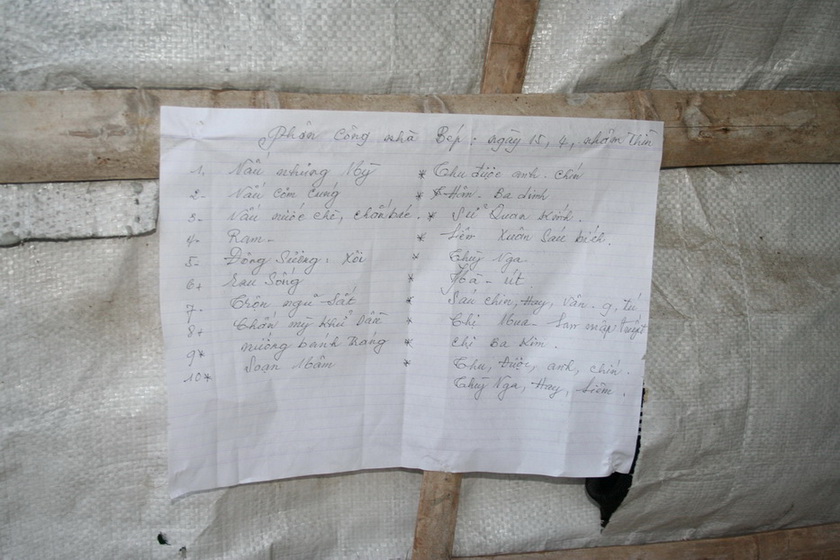 Phân công nhà Bếp: ngày 15, 4, nhâm Thìn
1. Nấu nhúng Mỳ * Thu được anh. chín
2- Nấu cơm cúng * Hân. Ba dinh
3- Nấu nước chè, * Sử Quan
4- Ram - * Liêm Xuân Sáu bích.
5- Đông Sương: Xôi * Thuý Nga
6+ Rau Sống * Hoà - út
7- Trộn ngũ Sắt * Sáu chín, Hay, Vân - g, tú
8+ Chần mỳ khử Dầu * Chị Mua -
9* nướng bánh Tráng * chị Ba Kim.
10* Soạn Mâm * Thu, Được, anh, chín.
Thuý Nga, Hay, Liêm.